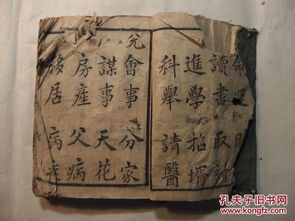 命
讀書取
進學招壻
科舉請醫
兌會事分家
謀事天花
房產父病
移居病
孔夫子旧书网